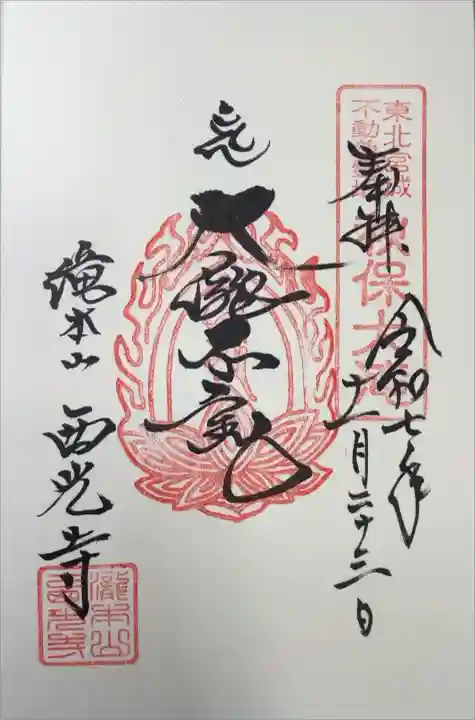 奉拝
令和七年
十一月二十三日
東北宮城
不動尊霊場
秋保大滝
大瀧不動
滝本山 西光寺
瀧本山
西光寺